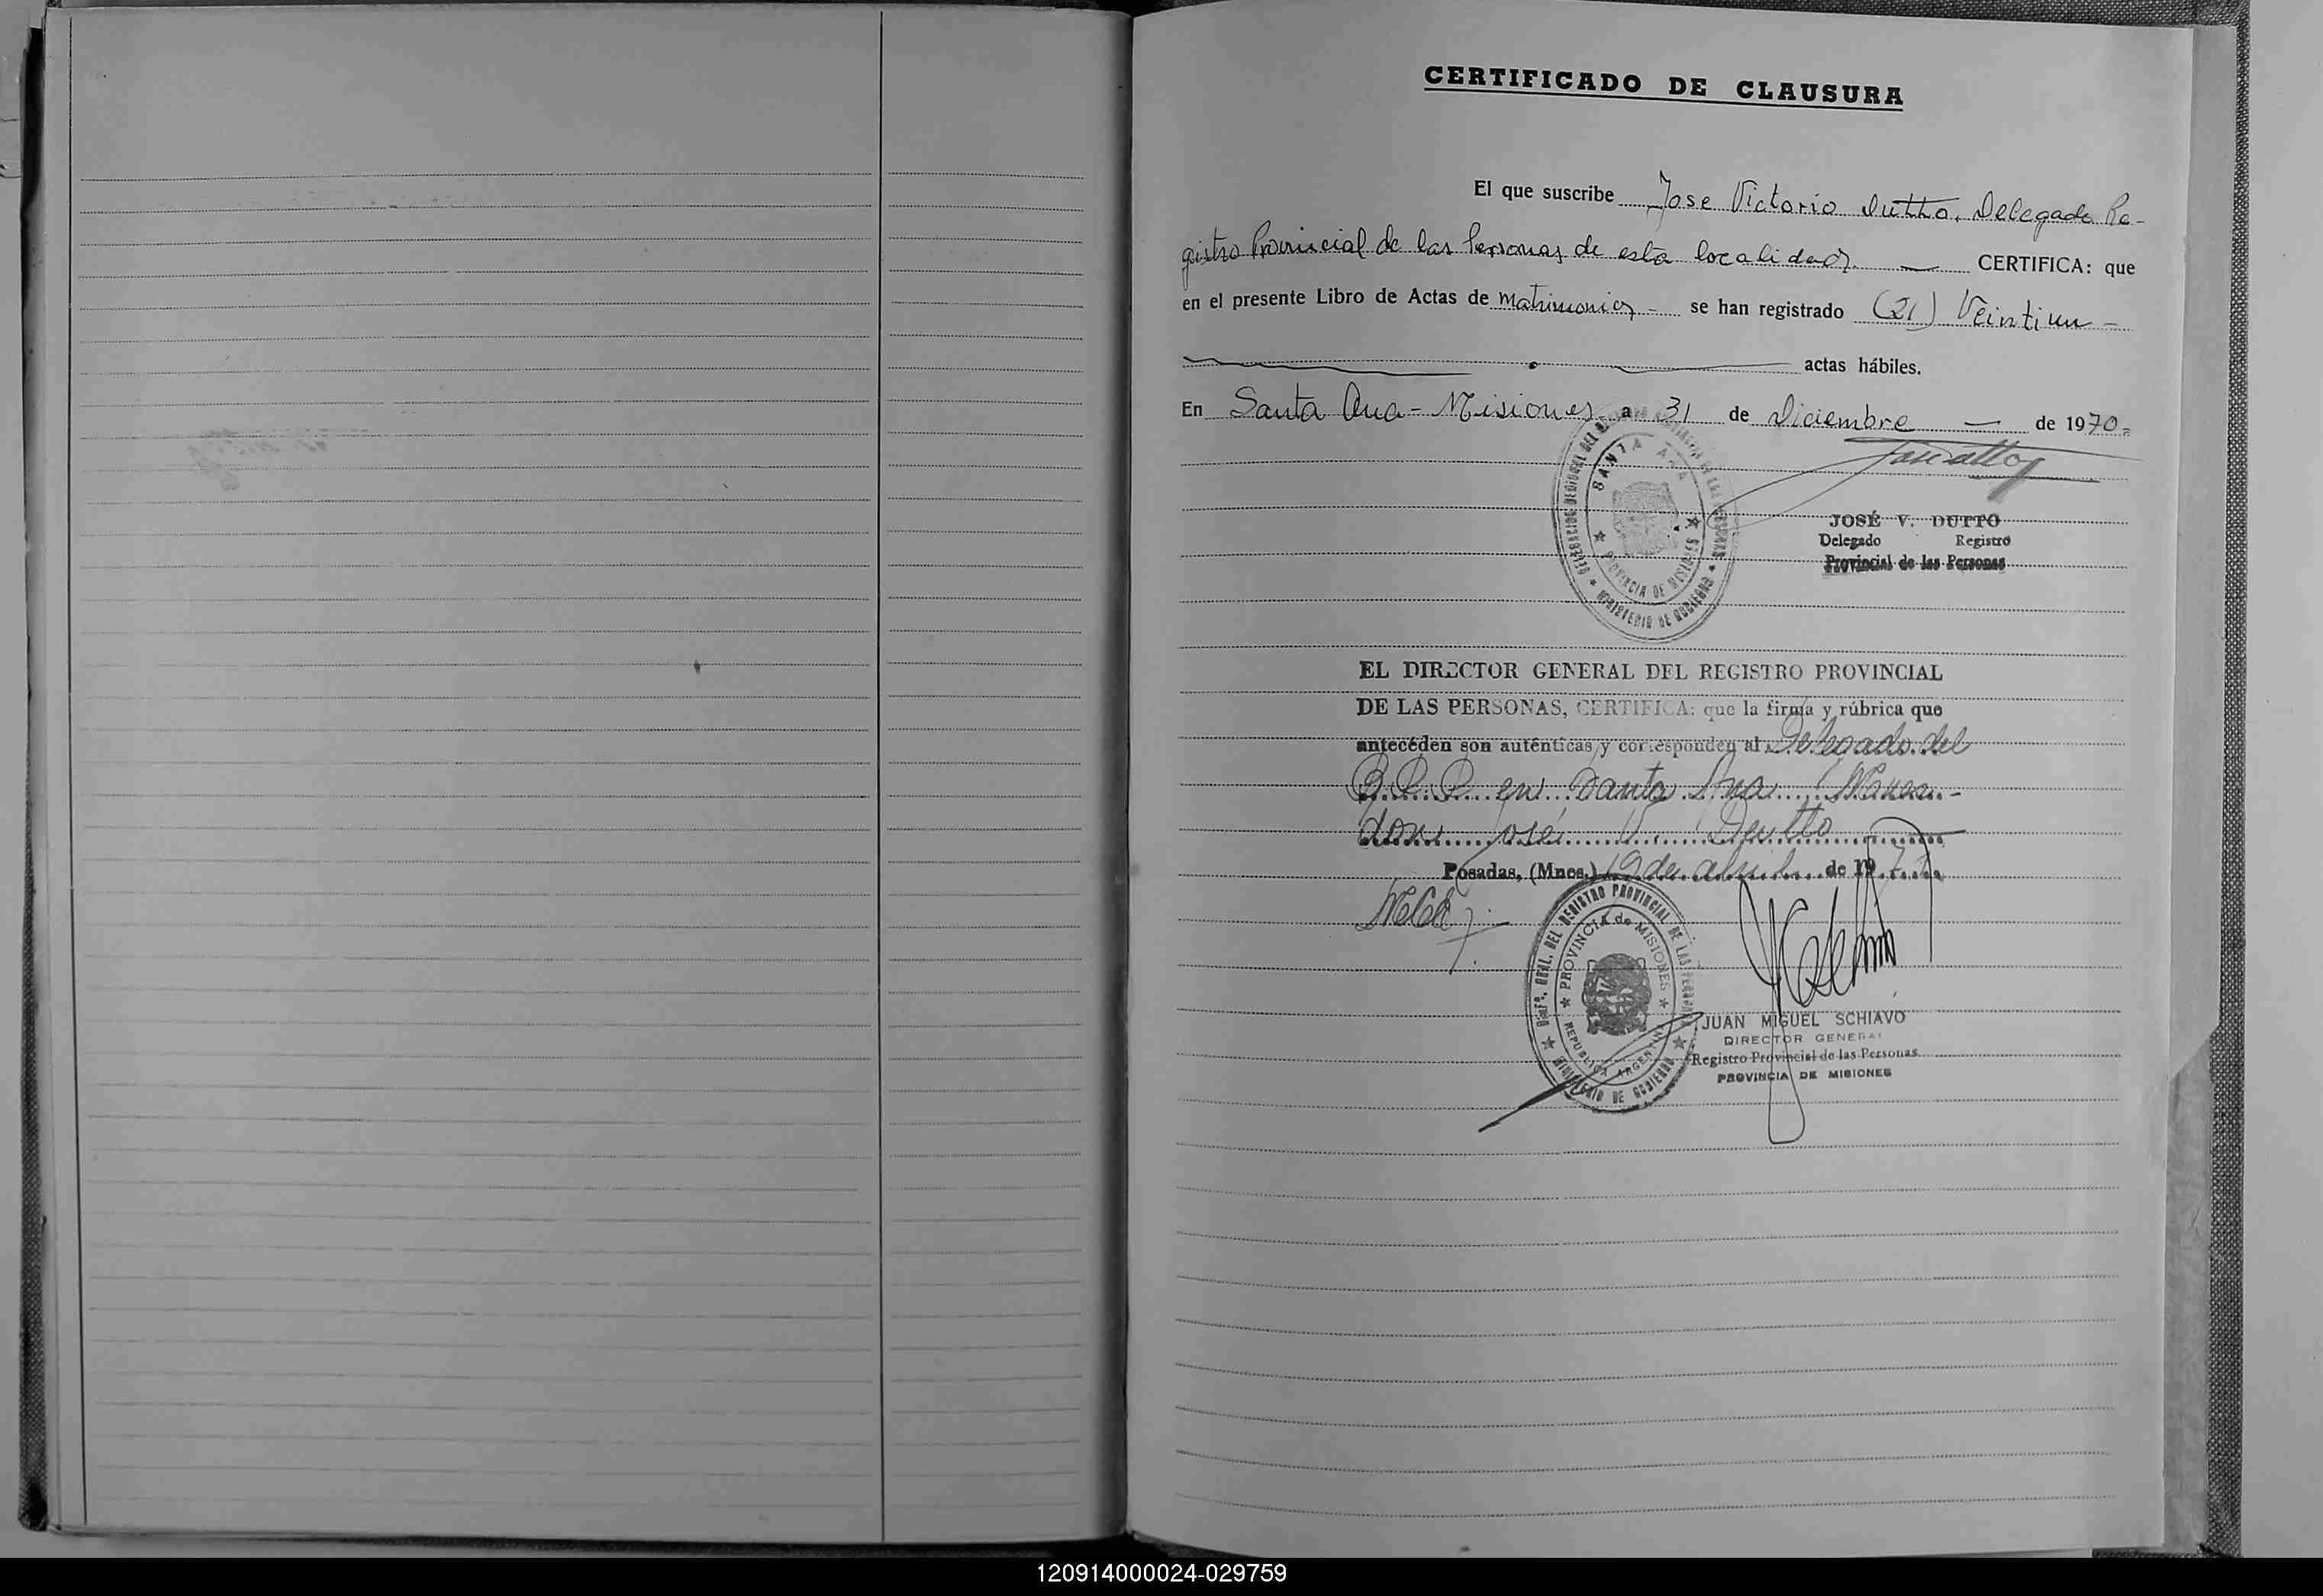 CERTIFICADO DE CLAUSURA
El que suscribe Jose Victorio Dutto. Delegado Re-
gistro Provincial de las Personas de esta localidad. — CERTIFICA: que
en el presente Libro de Actas de Matrimonios - se han registrado (21) Veintiun -
actas hábiles.
En Santa Ana - Misiones a 31 de Diciembre — de 1970.=
SANTA ANA
PROVINCIA DE MISIONES
MINISTERIO DE GOBIERNO
JOSÉ V. DUTTO
Delegado Registro
Provincial de las Personas
EL DIRECTOR GENERAL DEL REGISTRO PROVINCIAL
DE LAS PERSONAS, CERTIFICA: que la firma y rúbrica que
antecéden son auténticas y corresponden al Delegado del
R.P.P. en Santa Ana
don José V. Dutto
Posadas, (Mnes.) 19 de abril de 197
DIREC. GRAL. DEL REGISTRO PROVINCIAL DE LAS PERSONAS
PROVINCIA de MISIONES
REPUBLICA ARGENTINA
MINISTERIO DE GOBIERNO
JUAN MIGUEL SCHIAVO
DIRECTOR GENERAL
Registro Provincial de las Personas
PROVINCIA DE MISIONES
120914000024-029759